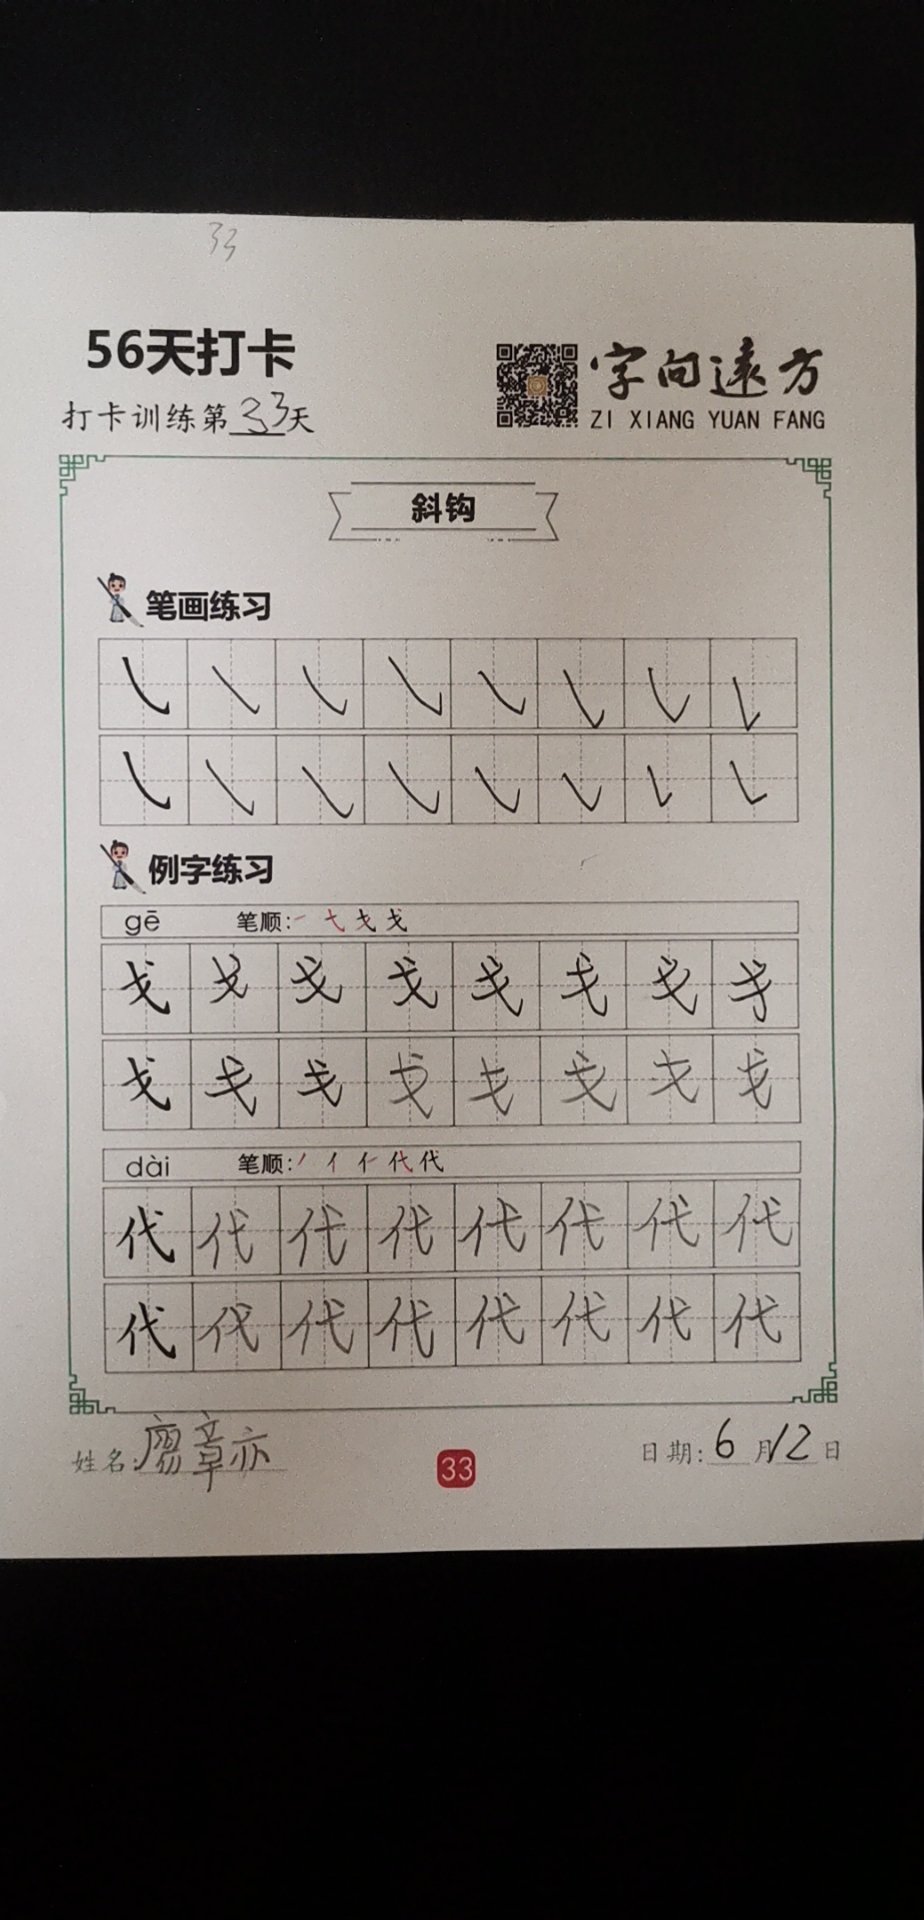 33
56天打卡
字向遠方
打卡训练第33天
ZI XIANG YUAN FANG
斜钩
笔画练习
例字练习
gē 笔顺: 一 弋 戈 戈
戈 戈 戈 戈 戈 戈 戈 戈
戈 戈 戈 戈 戈 戈 戈 戈
dài 笔顺: 丿 亻 仁 代 代
代 代 代 代 代 代 代 代
代 代 代 代 代 代 代 代
姓名: 廖章亦
33
日期: 6月12日